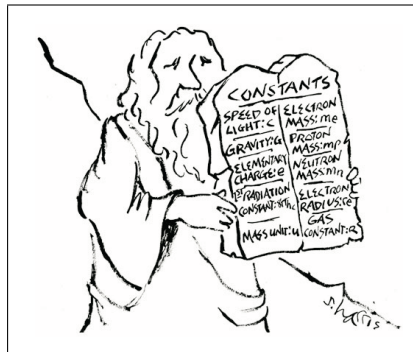 CONSTANTS
SPEED OF
LIGHT:C
GRAVITY:G
ELEMENTARY
CHARGE:e
1ST RADIATION
CONSTANT:8πhc
MASS UNIT:u
ELECTRON
MASS:me
PROTON
MASS:mp
NEUTRON
MASS:mn
ELECTRON
RADIUS:re
GAS
CONSTANT:R
s.harris